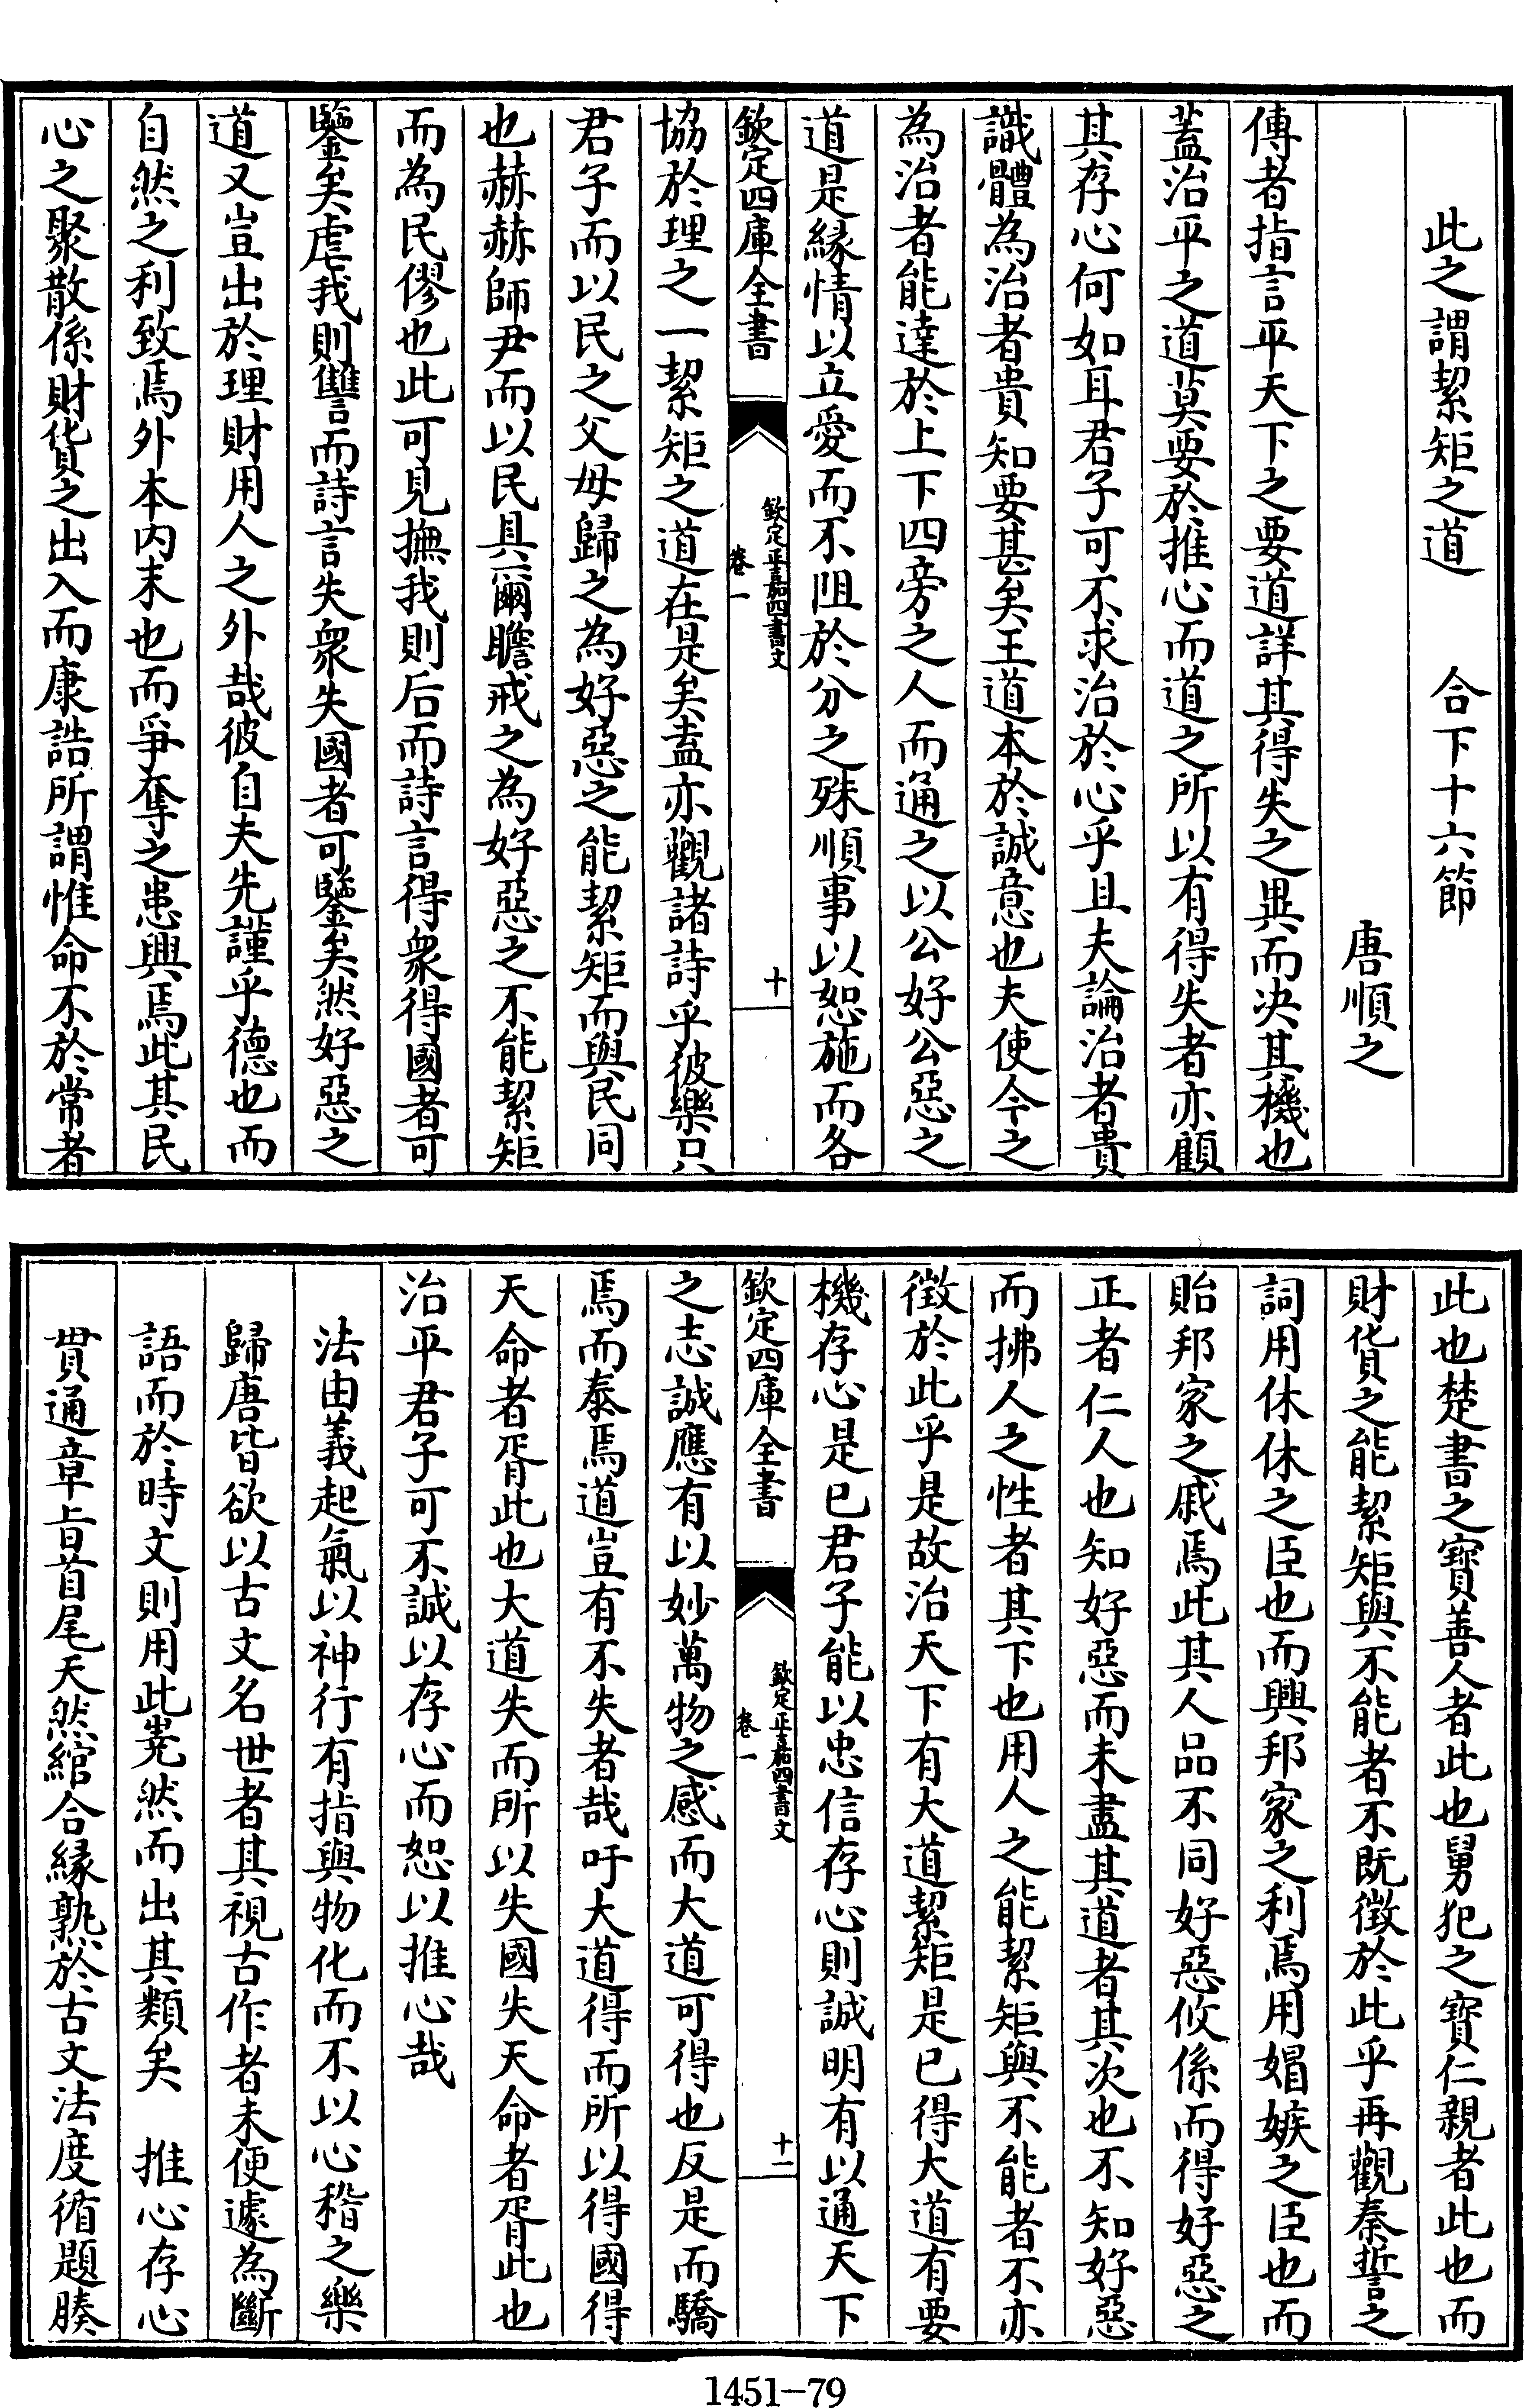 此之謂絜矩之道　合下十六節
唐順之
傳者指言平天下之要道詳其得失之異而决其機也
蓋治平之道莫要於推心而道之所以有得失者亦顧
其存心何如耳君子可不求治於心乎且夫論治者貴
識體為治者貴知要甚矣王道本於誠意也夫使今之
為治者能達於上下四旁之人而通之以公好公惡之
道是緣情以立愛而不阻於分之殊順事以恕施而各
欽定四庫全書
欽定正嘉四書文
卷一
十
協於理之一絜矩之道在是矣盍亦觀諸詩乎彼樂只
君子而以民之父母歸之為好惡之能絜矩而與民同
也赫赫師尹而以民具爾瞻戒之為好惡之不能絜矩
而為民僇也此可見撫我則后而詩言得衆得國者可
鑒矣虐我則讐而詩言失衆失國者可鑒矣然好惡之
道又豈出於理財用人之外哉彼自夫先謹乎德也而
自然之利致焉外本内末也而爭奪之患興焉此其民
心之聚散係財貨之出入而康誥所謂惟命不於常者
此也楚書之寳善人者此也舅犯之寳仁親者此也而
財貨之能絜矩與不能者不既徵於此乎再觀秦誓之
詞用休休之臣也而興邦家之利焉用媢嫉之臣也而
貽邦家之戚焉此其人品不同好惡攸係而得好惡之
正者仁人也知好惡而未盡其道者其次也不知好惡
而拂人之性者其下也用人之能絜矩與不能者不亦
徵於此乎是故治天下有大道絜矩是已得大道有要
機存心是已君子能以忠信存心則誠明有以通天下
欽定四庫全書
欽定正嘉四書文
卷一
十一
之志誠應有以妙萬物之感而大道可得也反是而驕
焉而泰焉道豈有不失者哉吁大道得而所以得國得
天命者胥此也大道失而所以失國失天命者胥此也
治平君子可不誠以存心而恕以推心哉
法由義起氣以神行有指與物化而不以心稽之樂
歸唐皆欲以古文名世者其視古作者未便遽為斷
語而於時文則用此嶤然而出其類矣　推心存心
貫通章旨首尾天然綰合緣熟於古文法度循題腠
1451-79